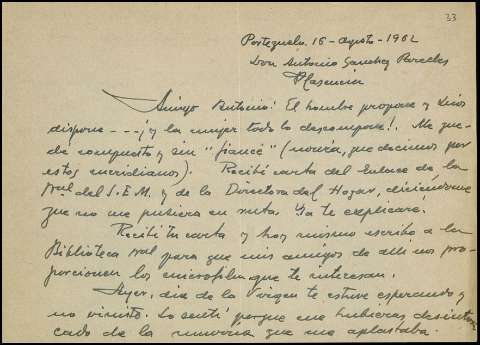 33
Portezuelo. 16 - agosto - 1962
Don Antonio Sanchez Paredes
Plasencia
Amigo Antonio: El hombre propone y Dios
dispone - - - ¡y la mujer todo lo descompone!. Me que-
dé compuesto y sin "fiancé" (novia, que decimos por
estos meridianos). Recibí carta del Enlace de la
del S.E.M. y de la Directora del Hogar, diciéndome
que no me pusiera en ruta. Ya te explicaré.
Recibí tu carta y hoy mismo escribo a la
Biblioteca para que mis amigos de allí nos pro-
porcionen los microfilm que te interesan.
Ayer, dia de la Virgen te estuve esperando y
no viniste. Lo sentí porque me hubieras desintoxi-
cado de la murria que me aplastaba.